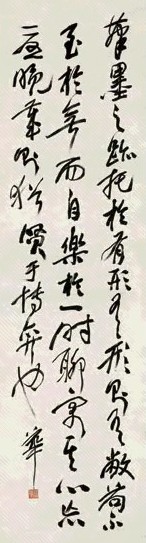 筆墨之跡托於有形有形則有敝苟不
至於無而自樂於一時聊寓其心忘
憂晚歲則猶賢于博弈也 華